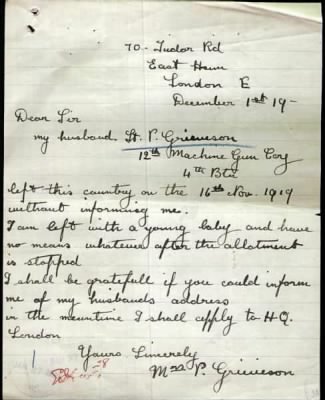 70 - Tudor Rd
East Ham
London E
December 1st 19-
Dear Sir
my husband, Lt. P. Grieveson
12th Machine Gun Coy
4th Btc
left this country on the 16th Nov. 1919
without informing me.
I am left with a young baby and have
no means whatever after the allotment
is stopped
I shall be gratefull if you could inform
me of my husbands address
in the meantime I shall apply to H.Q.
London
Yours Sincerely
Mrs P. Grieveson